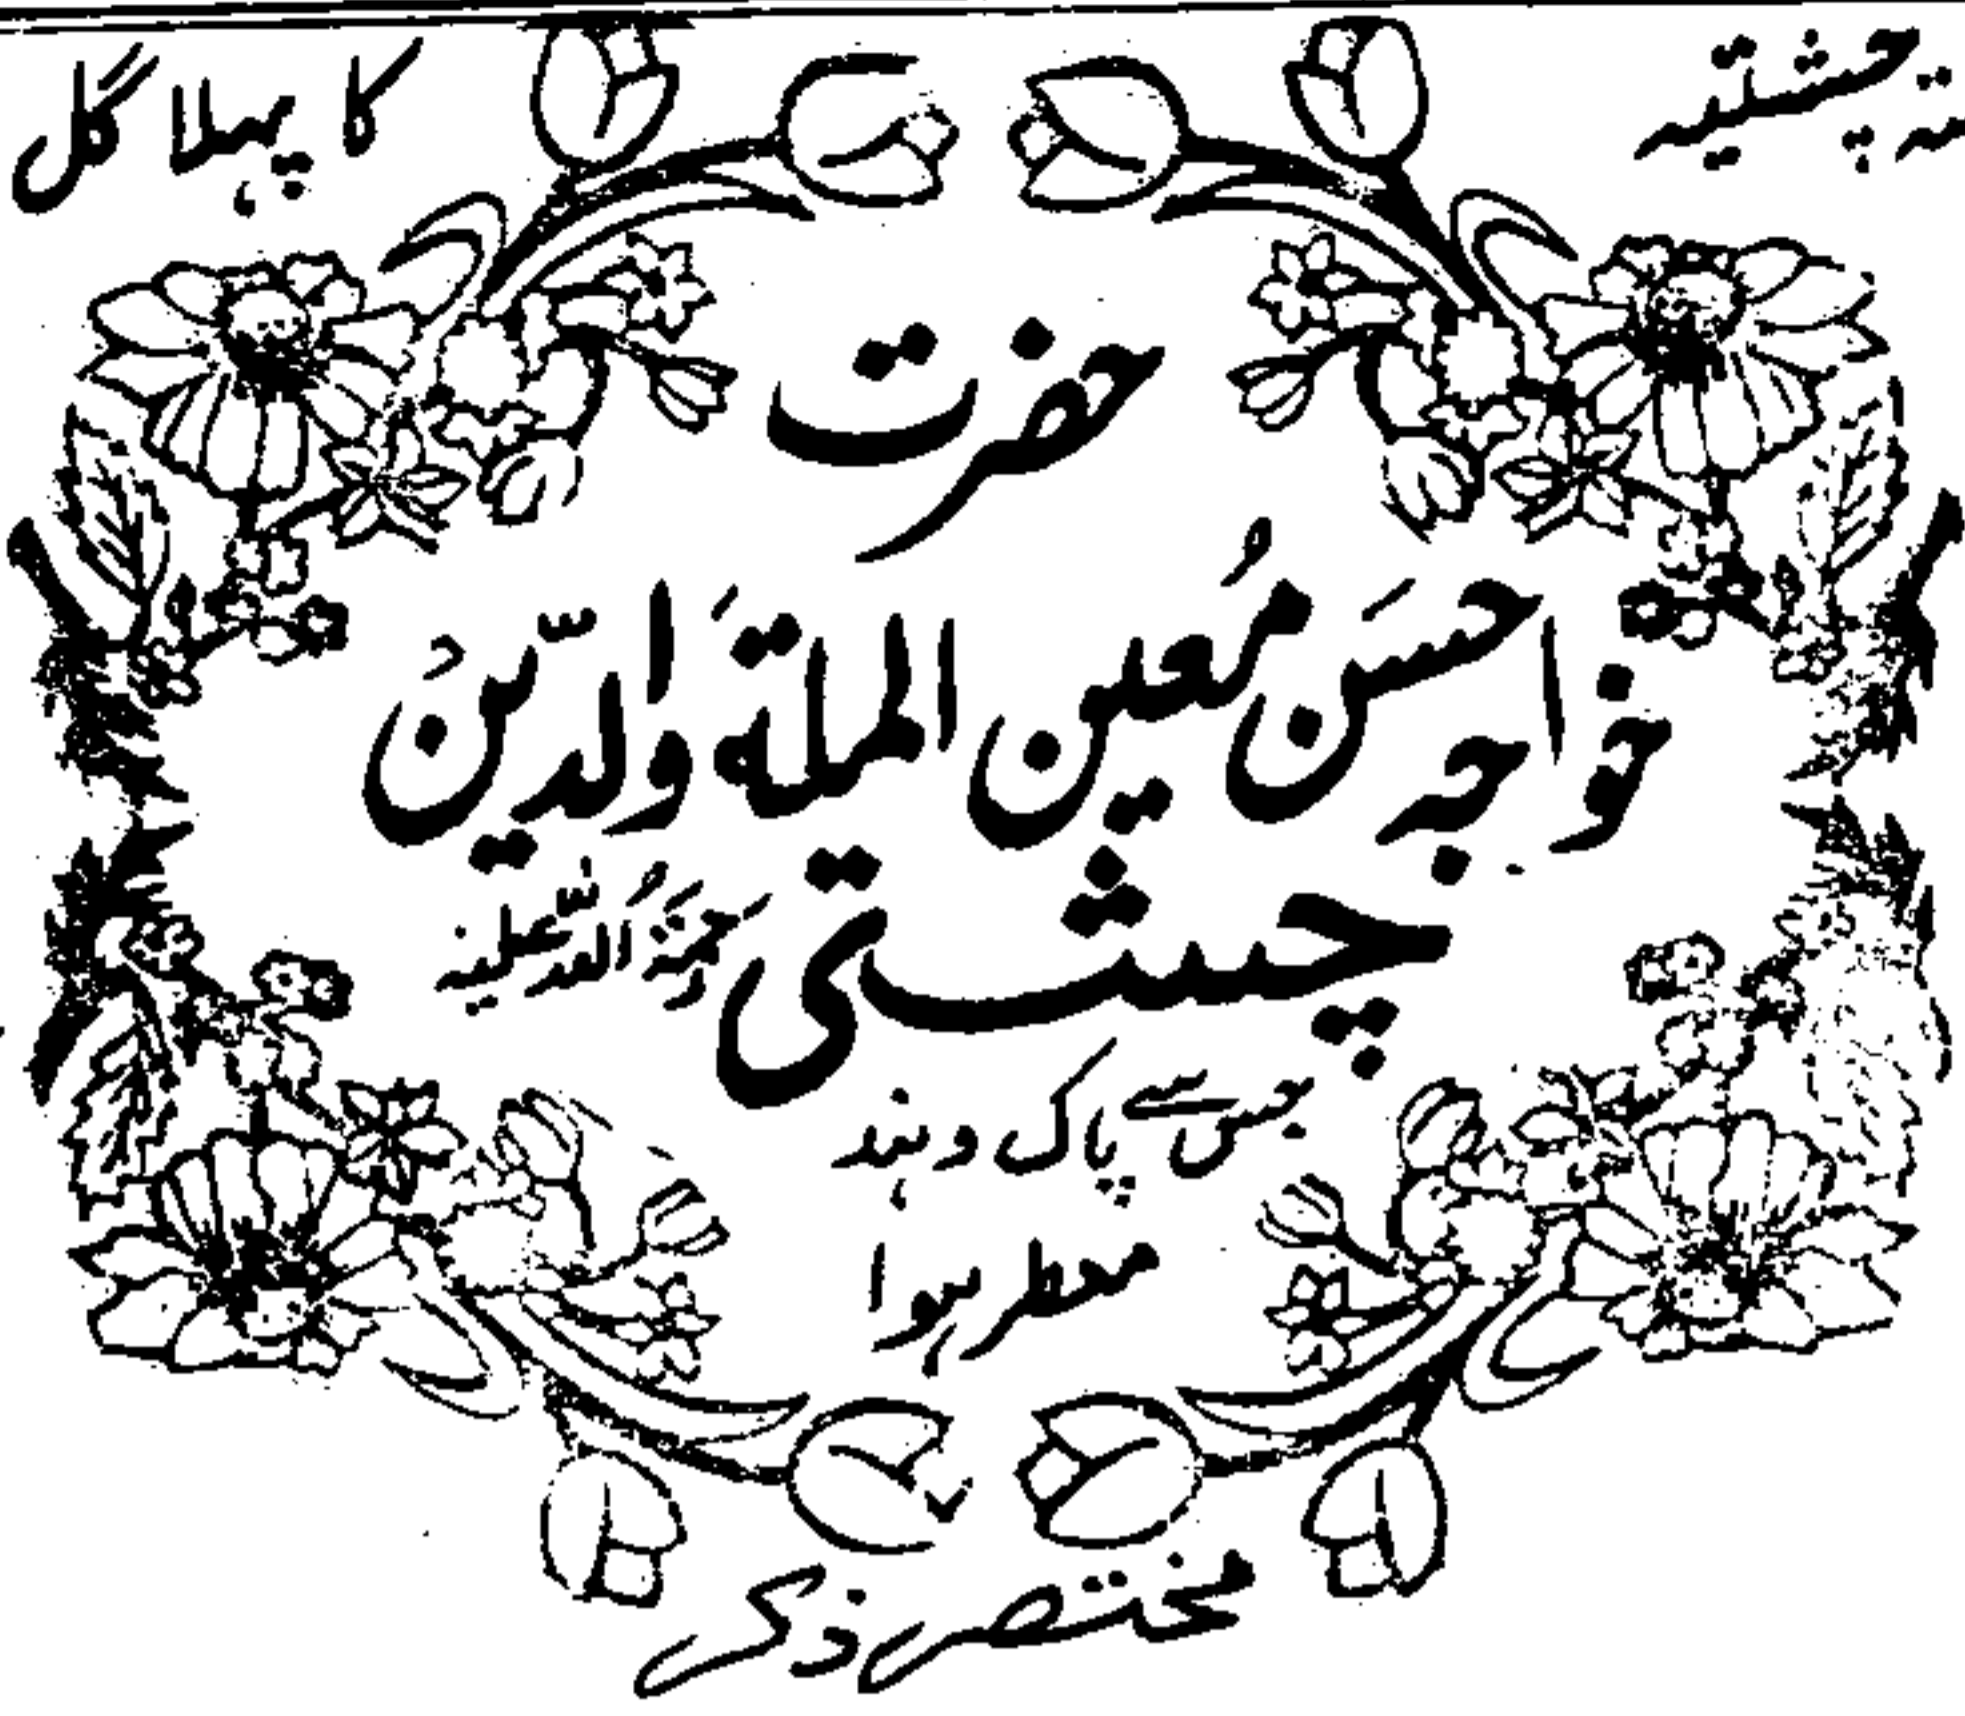 چشتیہ کا پہلا گل
حضرت
خواجہ حسَن مُعین الملۃَ والدّینُ
چشتی رَحمَۃُ اللہ عَلَیہ
جس سے پاک و ہند
معطر ہوا
مختصر ذکر